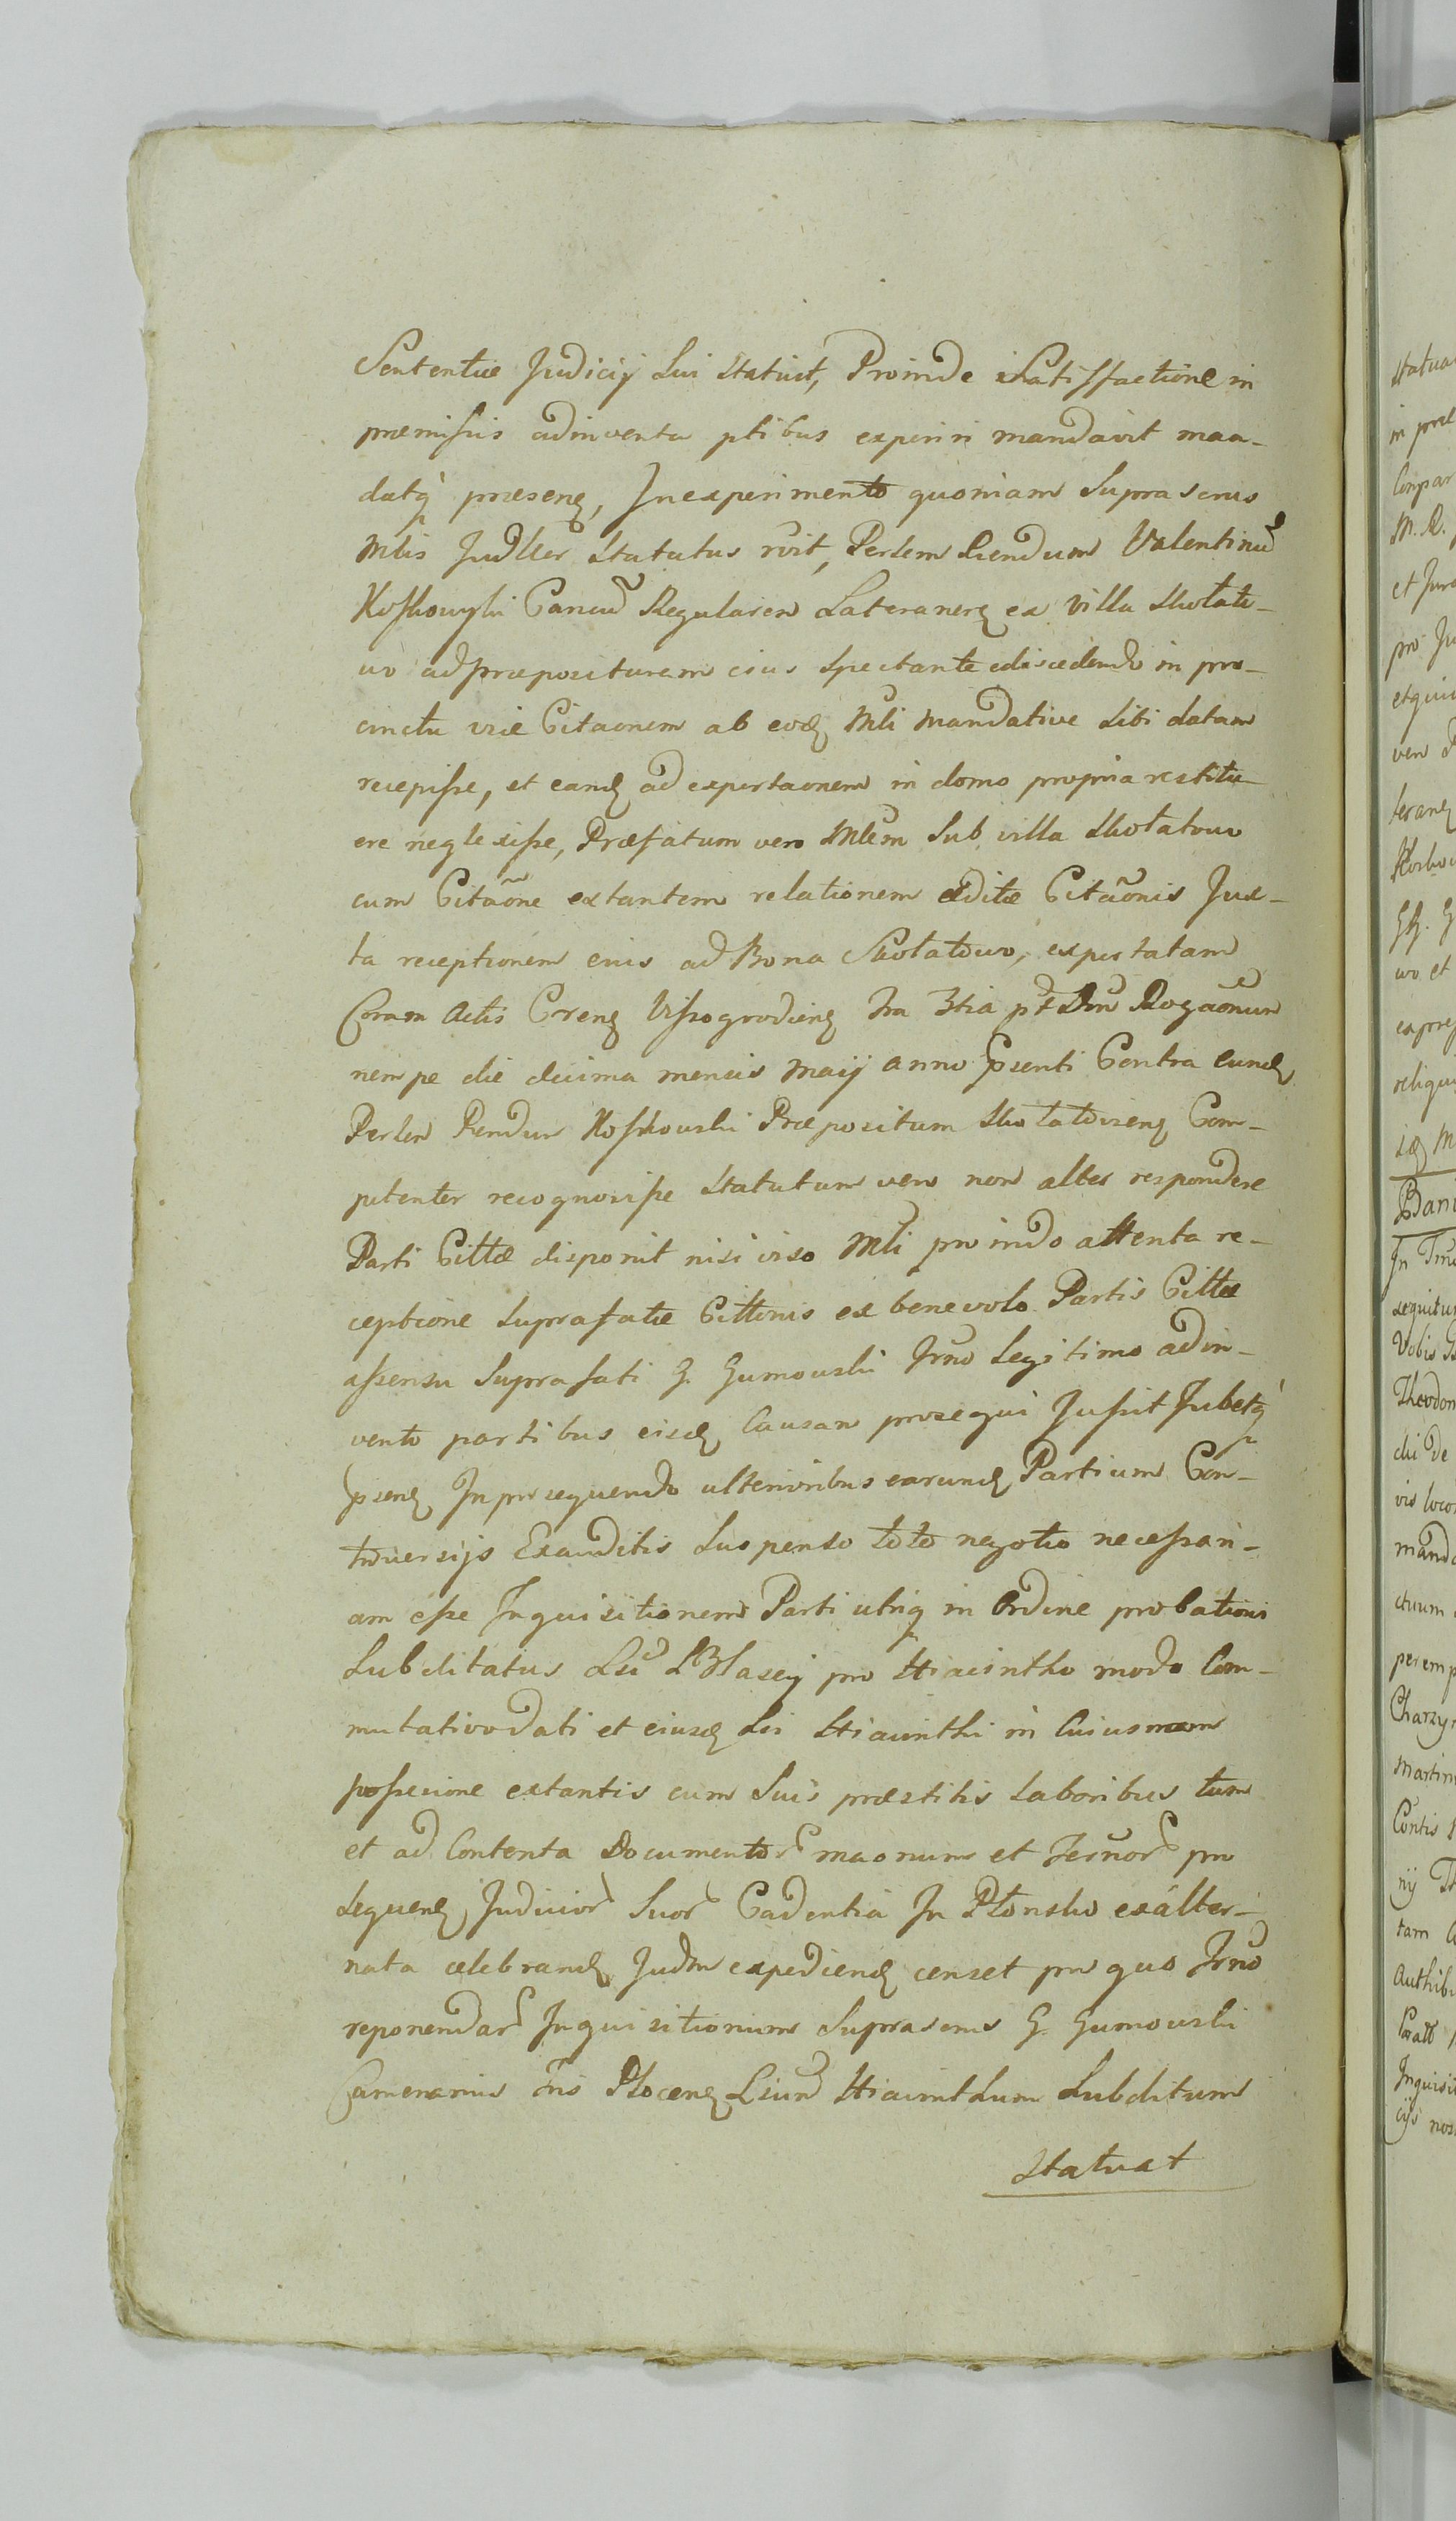 Sententiæ Judicij Sui Statuit, Proinde Satisfactione in
præmissis adinventa ptibus experiri mandavit man-
datq præsenq, In experimento quoniam Suprascrus
Mlis Judller Statutus rvit, Perlem Rendum Valentinum
Koskowski Cancum Regularem Lateranenq ex villa Skolato-
wo ad præposituram eius Spectante discedendo in pro-
cinctu viæ Citaonem ab eodq Mli mandative Sibi datam
recepisse, et eandq ad exportaonem in domo propria restitu-
ere neglexisse, Præfatum vero Mlem Sub villa Skolatowo
cum Citaõne extantem relationem editæ Citaõnis Jux-
ta receptionem eius ad Bona Skolatowo, exportatam
Coram Actis Crenq Vissogrodienq fra 3tia pt Dm Rogaõnum
nempe die decima mensis Maij anno psenti Contra Eundq
Perlem Rendum Koskowski Præpositum Skolatovienq Com-
petenter recognovisse Statutum vero non alter respondere
Parti Cittæ disponit nisi viso Mli proindo attenta re-
ceptione Suprafatæ Cittonis ex benevolo Partis Cittæ
assensu Suprafati G. Gumowski Trno Legitimo adin-
vento partibus eisdq Causam prosequi Jussit Jubetq
psenq In prosequendo ulterioribus earundq Partium Con-
troversijs Exauditis Suspenso toto negotio necessari-
am esse Inquisitionem Parti utriq in Ordine probationis
Subditatus Lsi L Blasij pro Hiacintho modo Com-
mutativo dati et eiusdq Lsi Hiacinthi in Cuiusnam
possesione extantis cum Suis præstitis Laboribus tum
et ad Contenta Documentor maonum et Ternor pro
Sequenq Judicior Suor Cadentia In Płonsko exalter-
nata celebrandq Judm expediendq censet pro quo Trno
reponendar Inquisitionum Suprascrus G. Gumowski
Camerarius Tris Plocenq Lsum Hiacinthum Subditum
Statuat